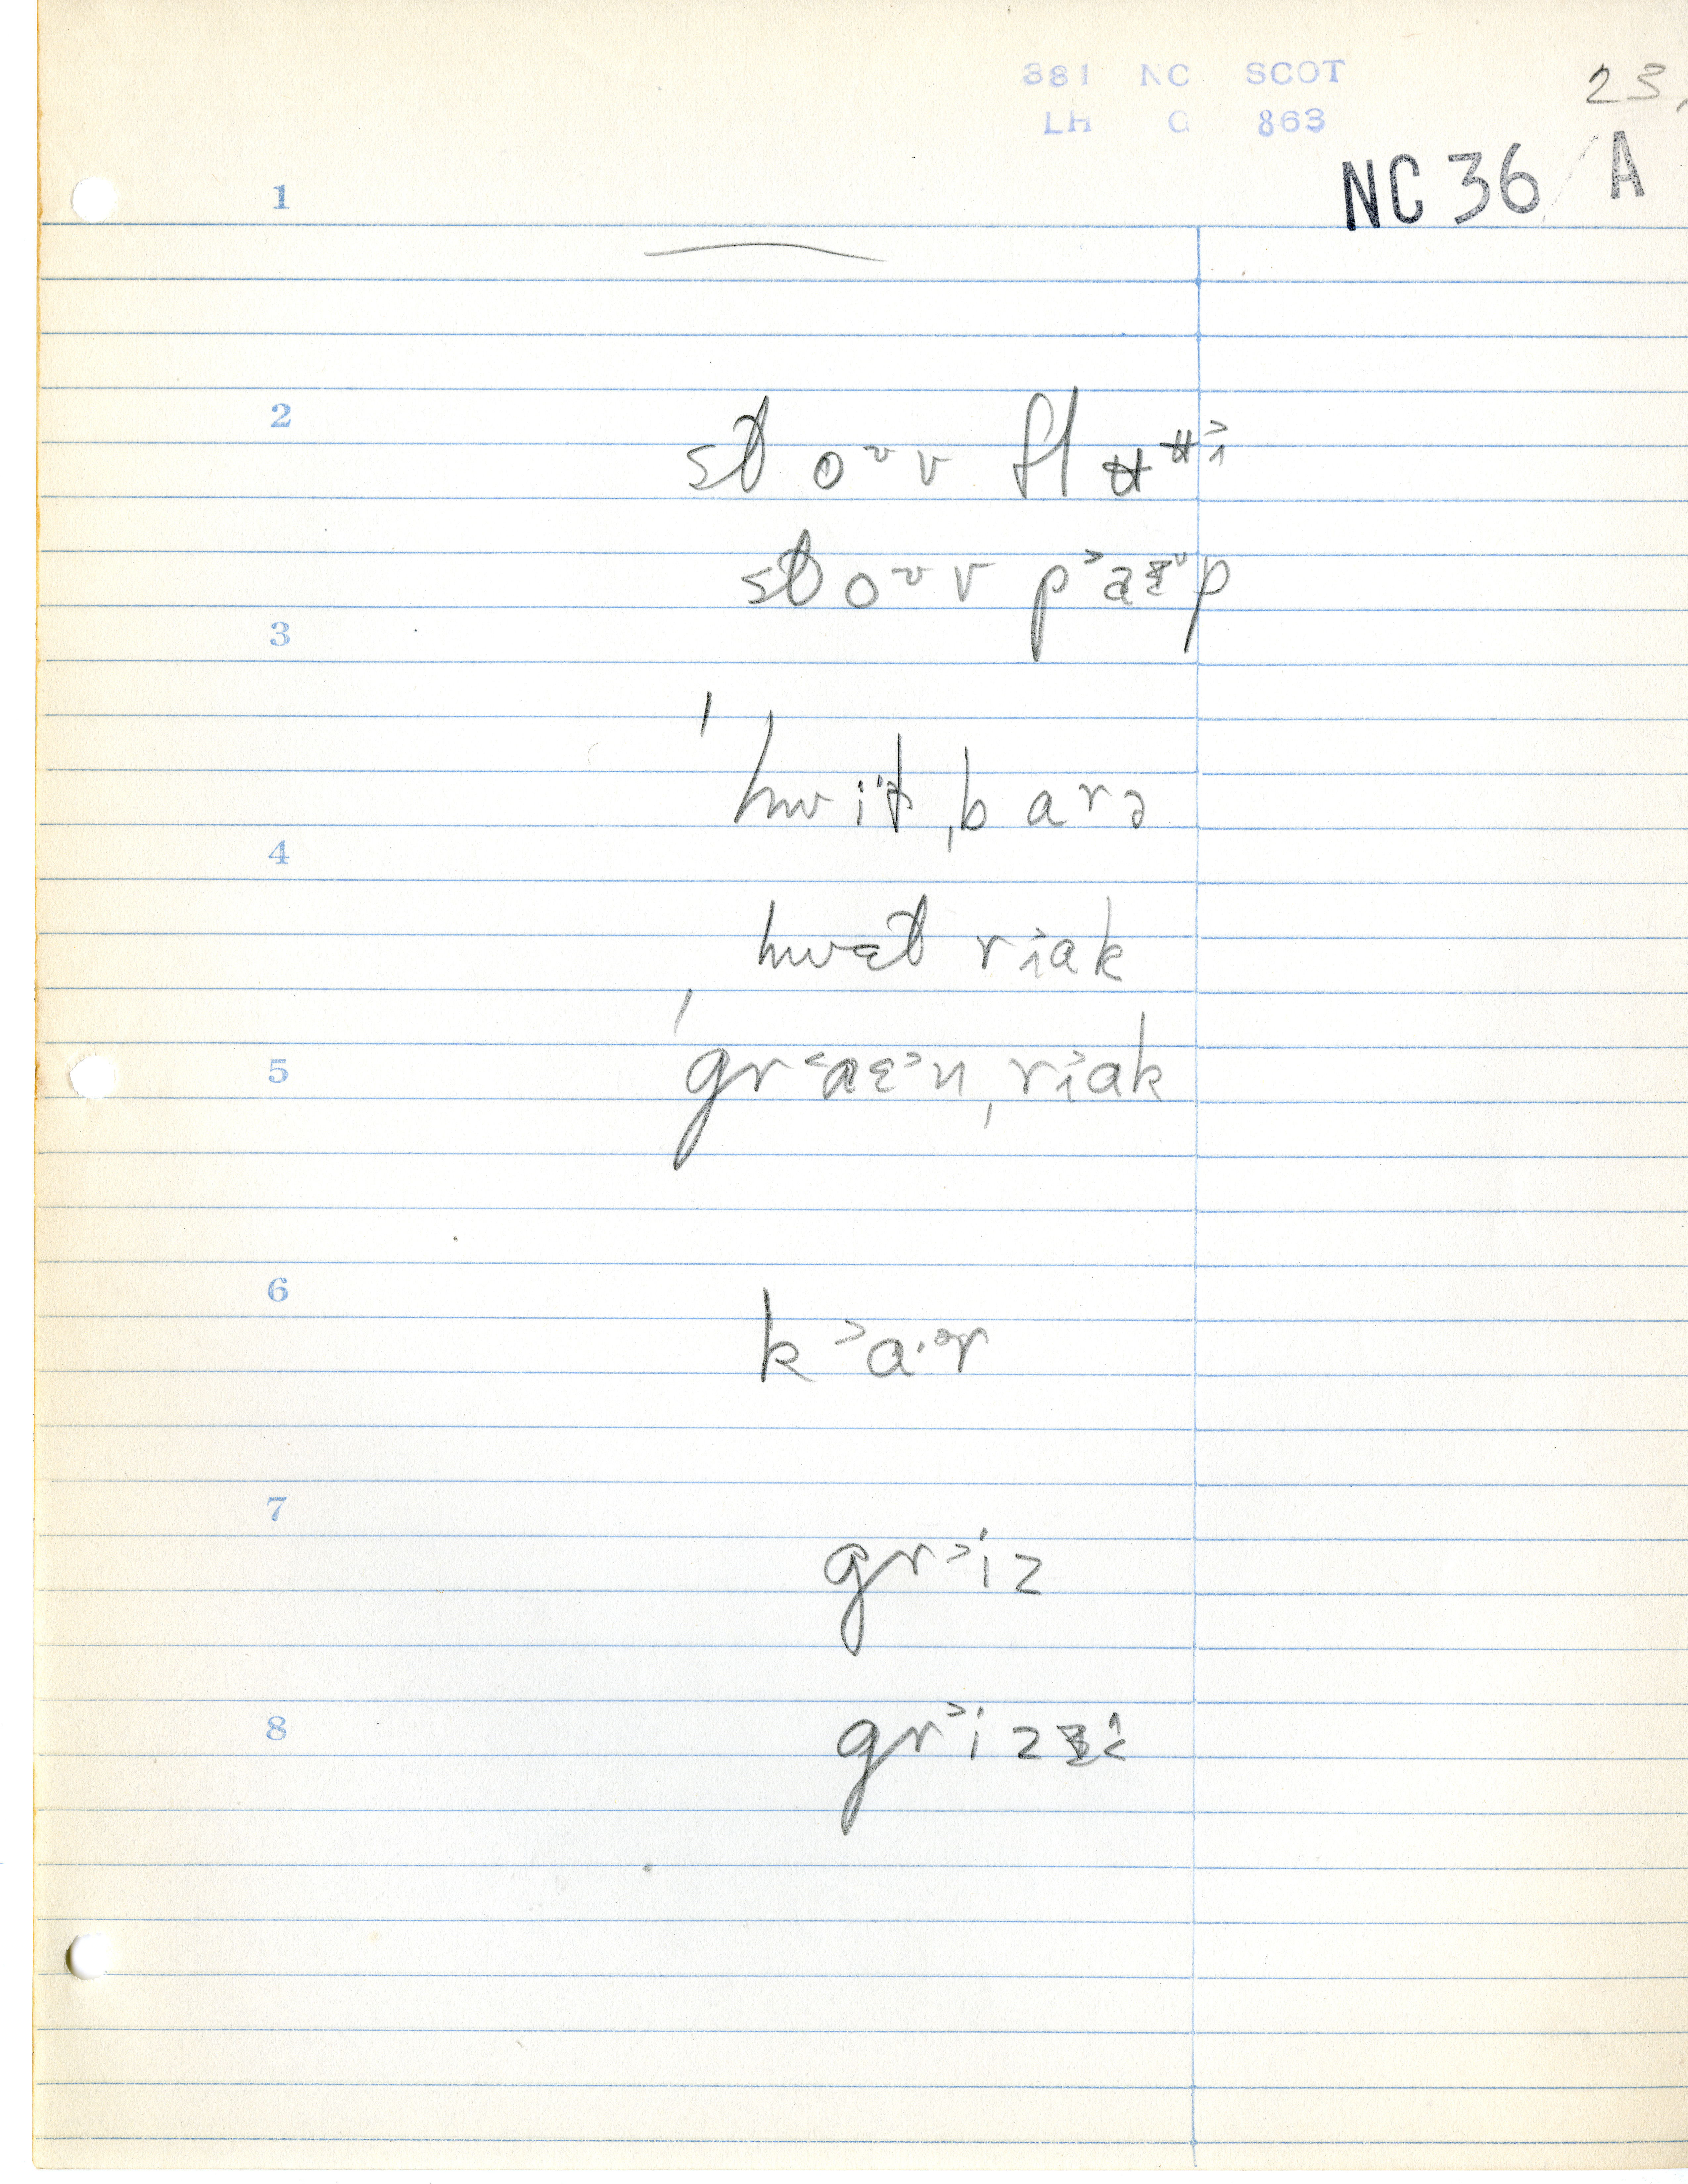 381 NC SCOT
LH G 863
23,
NC 36 / A
1
2
st oᵛ v fl ʉ ʉ˃i
st oᵛ v p˃aɛᵛp
3
ˈhwiˑt ˌb arə
4
hwɛt riak
5
ˈgr˂aɛ˃n ˌr˃iak
6
k ˃a·ər
7
gr˃iz
8
gr˃iz